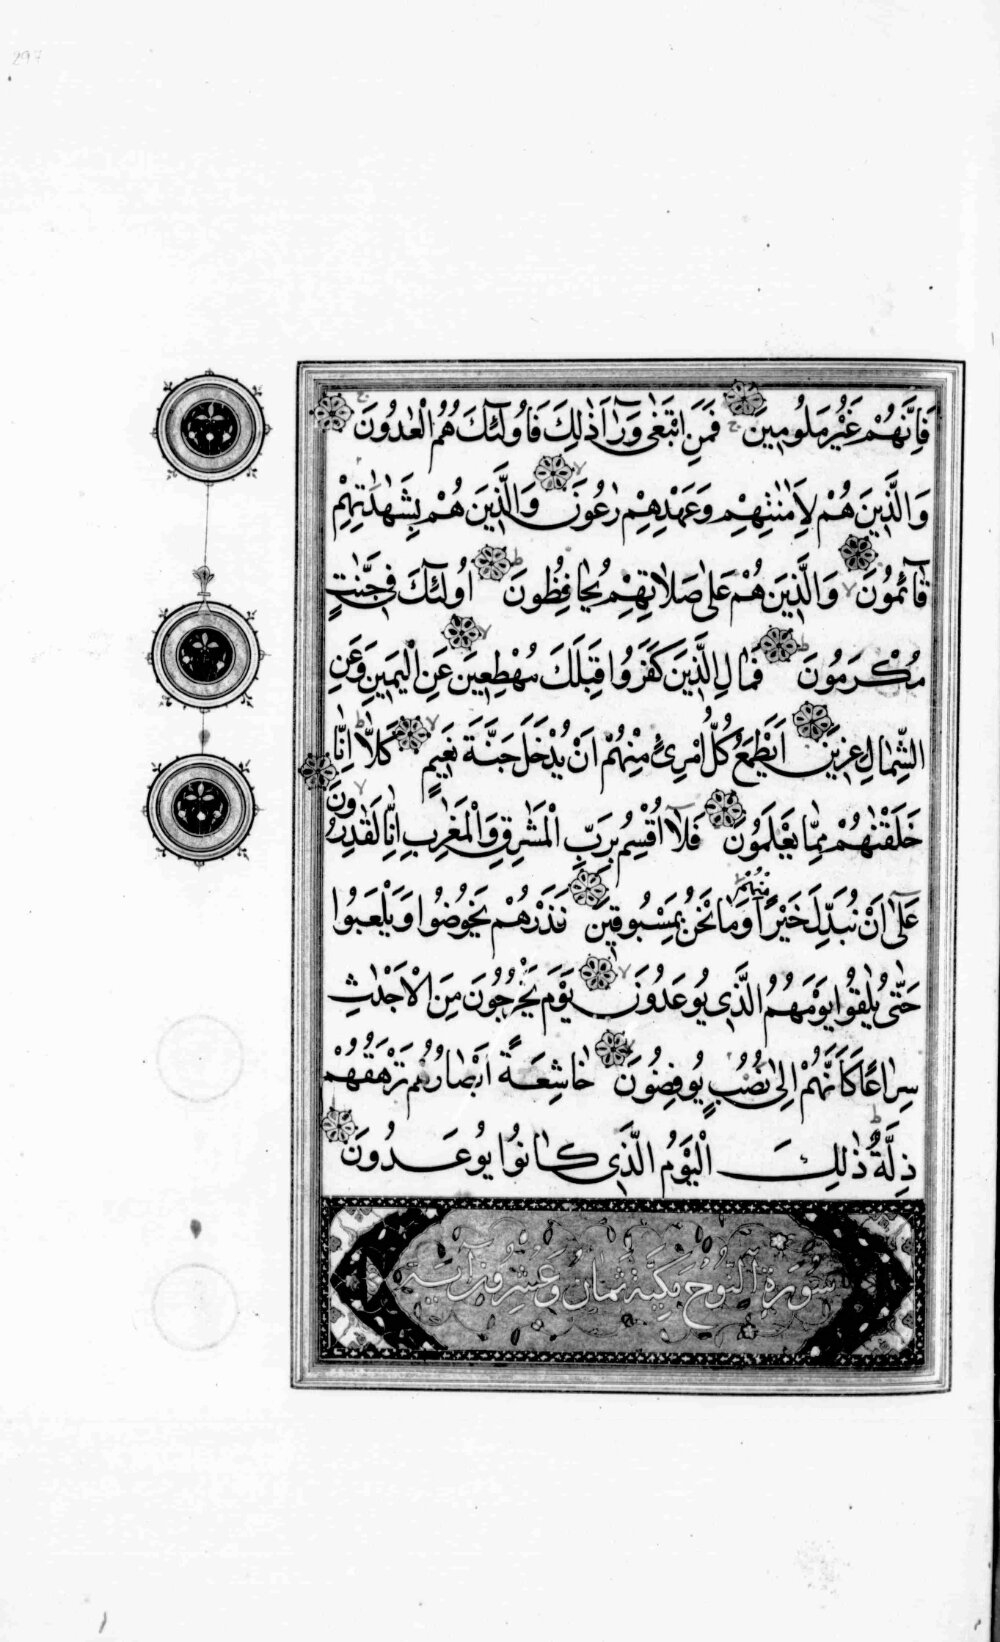 297
فَاِنَّهُمْ غَيْرُ مَلُومِينَ فَمَنِ ابْتَغٰى وَرَآءَ ذٰلِكَ فَاُولٰٓئِكَ هُمُ الْعٰدُونَ
وَالَّذِينَ هُمْ لِاَمٰنٰتِهِمْ وَعَهْدِهِمْ رٰعُونَ وَالَّذِينَ هُمْ بِشَهٰدٰتِهِمْ
قَآئِمُونَ وَالَّذِينَ هُمْ عَلٰى صَلَاتِهِمْ يُحَافِظُونَ اُولٰٓئِكَ فِى جَنّٰتٍ
مُكْرَمُونَ فَمَالِ الَّذِينَ كَفَرُوا قِبَلَكَ مُهْطِعِينَ عَنِ الْيَمِينِ وَعَنِ
الشِّمَالِ عِزِينَ اَيَطْمَعُ كُلُّ امْرِئٍ مِنْهُمْ اَنْ يُدْخَلَ جَنَّةَ نَعِيمٍ كَلَّا اِنَّا
خَلَقْنٰهُمْ مِمَّا يَعْلَمُونَ فَلَآ اُقْسِمُ بِرَبِّ الْمَشٰرِقِ وَالْمَغٰرِبِ اِنَّا لَقٰدِرُونَ
عَلٰٓى اَنْ نُبَدِّلَ خَيْرًا مِنْهُمْ وَمَا نَحْنُ بِمَسْبُوقِينَ فَذَرْهُمْ يَخُوضُوا وَيَلْعَبُوا
حَتّٰى يُلٰقُوا يَوْمَهُمُ الَّذِى يُوعَدُونَ يَوْمَ يَخْرُجُونَ مِنَ الْاَجْدَاثِ
سِرَاعًا كَاَنَّهُمْ اِلٰى نُصُبٍ يُوفِضُونَ خَاشِعَةً اَبْصَارُهُمْ تَرْهَقُهُمْ
ذِلَّةٌ ذٰلِكَ الْيَوْمُ الَّذِى كَانُوا يُوعَدُونَ
سُورَةُ النُّوحِ مَكِيَّةٌ ثَمَانٌ وَعِشْرُونَ آيَةً